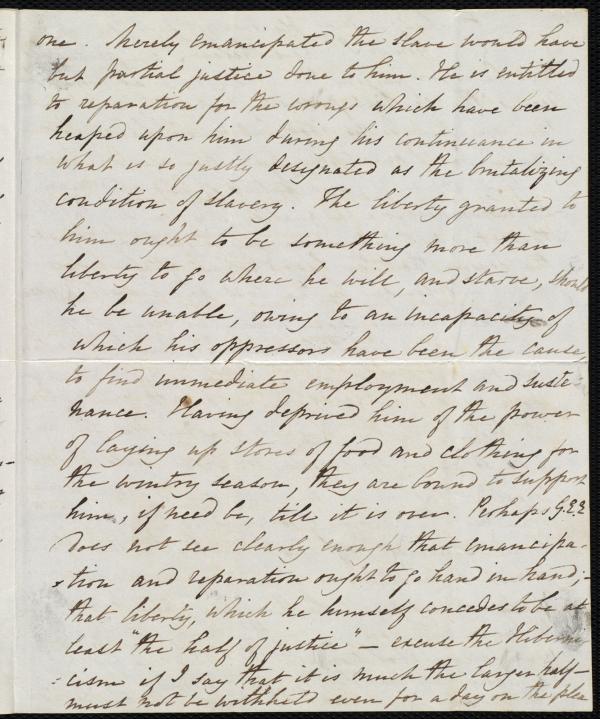 one. Merely emancipated the slave would have
but partial justice done to him. He is entitled
to reparation for the wrongs which have been
heaped upon him during his continuance in
what is so justly designated as the brutalizing
condition of slavery. The liberty granted to
him ought to be something more than
liberty to go where he will, and starve, should
he be unable, owing to an incapacity of
which his oppressors have been the cause,
to find immediate employment and suste-
nance. Having deprived him of the power
of laying up stores of food and clothing for
the wintry season, they are bound to support
him, if need be, till it is over. Perhaps G.E.E
does not see clearly enough that emancipa-
-tion and reparation ought to go hand in hand;-
that liberty, which he himself concedes to be at
least "the half of justice" — excuse the Hiberni
-cism if I say that it is much the larger half—
must not be withheld even for a day on the plea